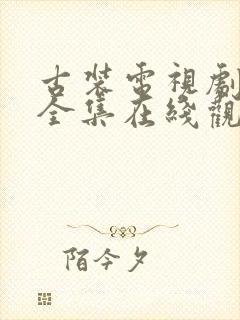 古装電視劇
全集在綫觀
陌今夕